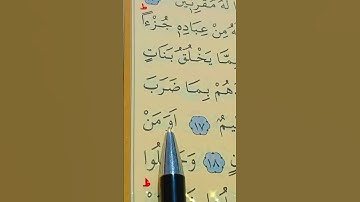 لَهُ مُقْرِنِينَ
لَهُ مِنْ عِبَادِهِ جُزْءًا
مِمَّا يَخْلُقُ بَنَاتٍ
دُهُمْ بِمَا ضَرَبَ
يمٌ ﴿١٧﴾ اَوَمَنْ
ينٍ ﴿١٨﴾ وَجَ لُوا